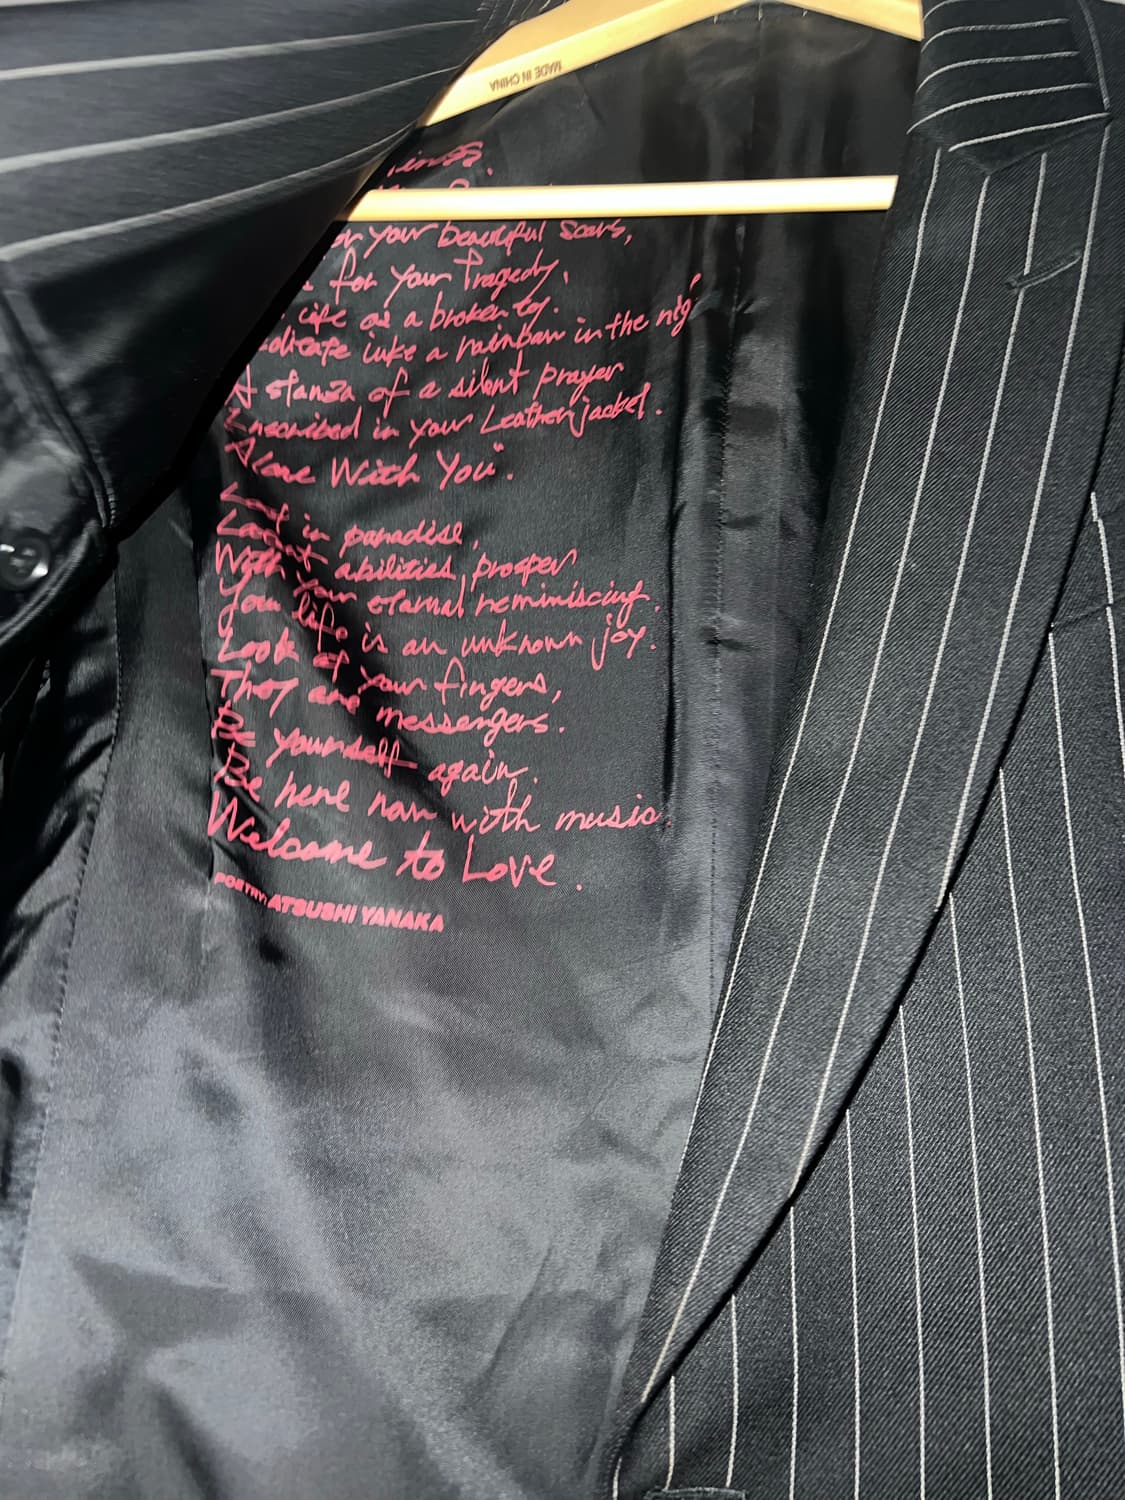 MADE IN CHINA
your beautiful scars,
for your Tragedy,
life as a broken toy.
a rainbow in the nig
A stanza of a silent prayer
Inscribed in your Leather jacket.
Alone With You".
Lost in paradise,
abilities, prosper
With your eternal reminiscing.
Your life is an unknown joy.
Look at your fingers,
They are messengers.
Be yourself again.
Be here now with music.
Welcome to Love.
POETRY: ATSUSHI YANAKA